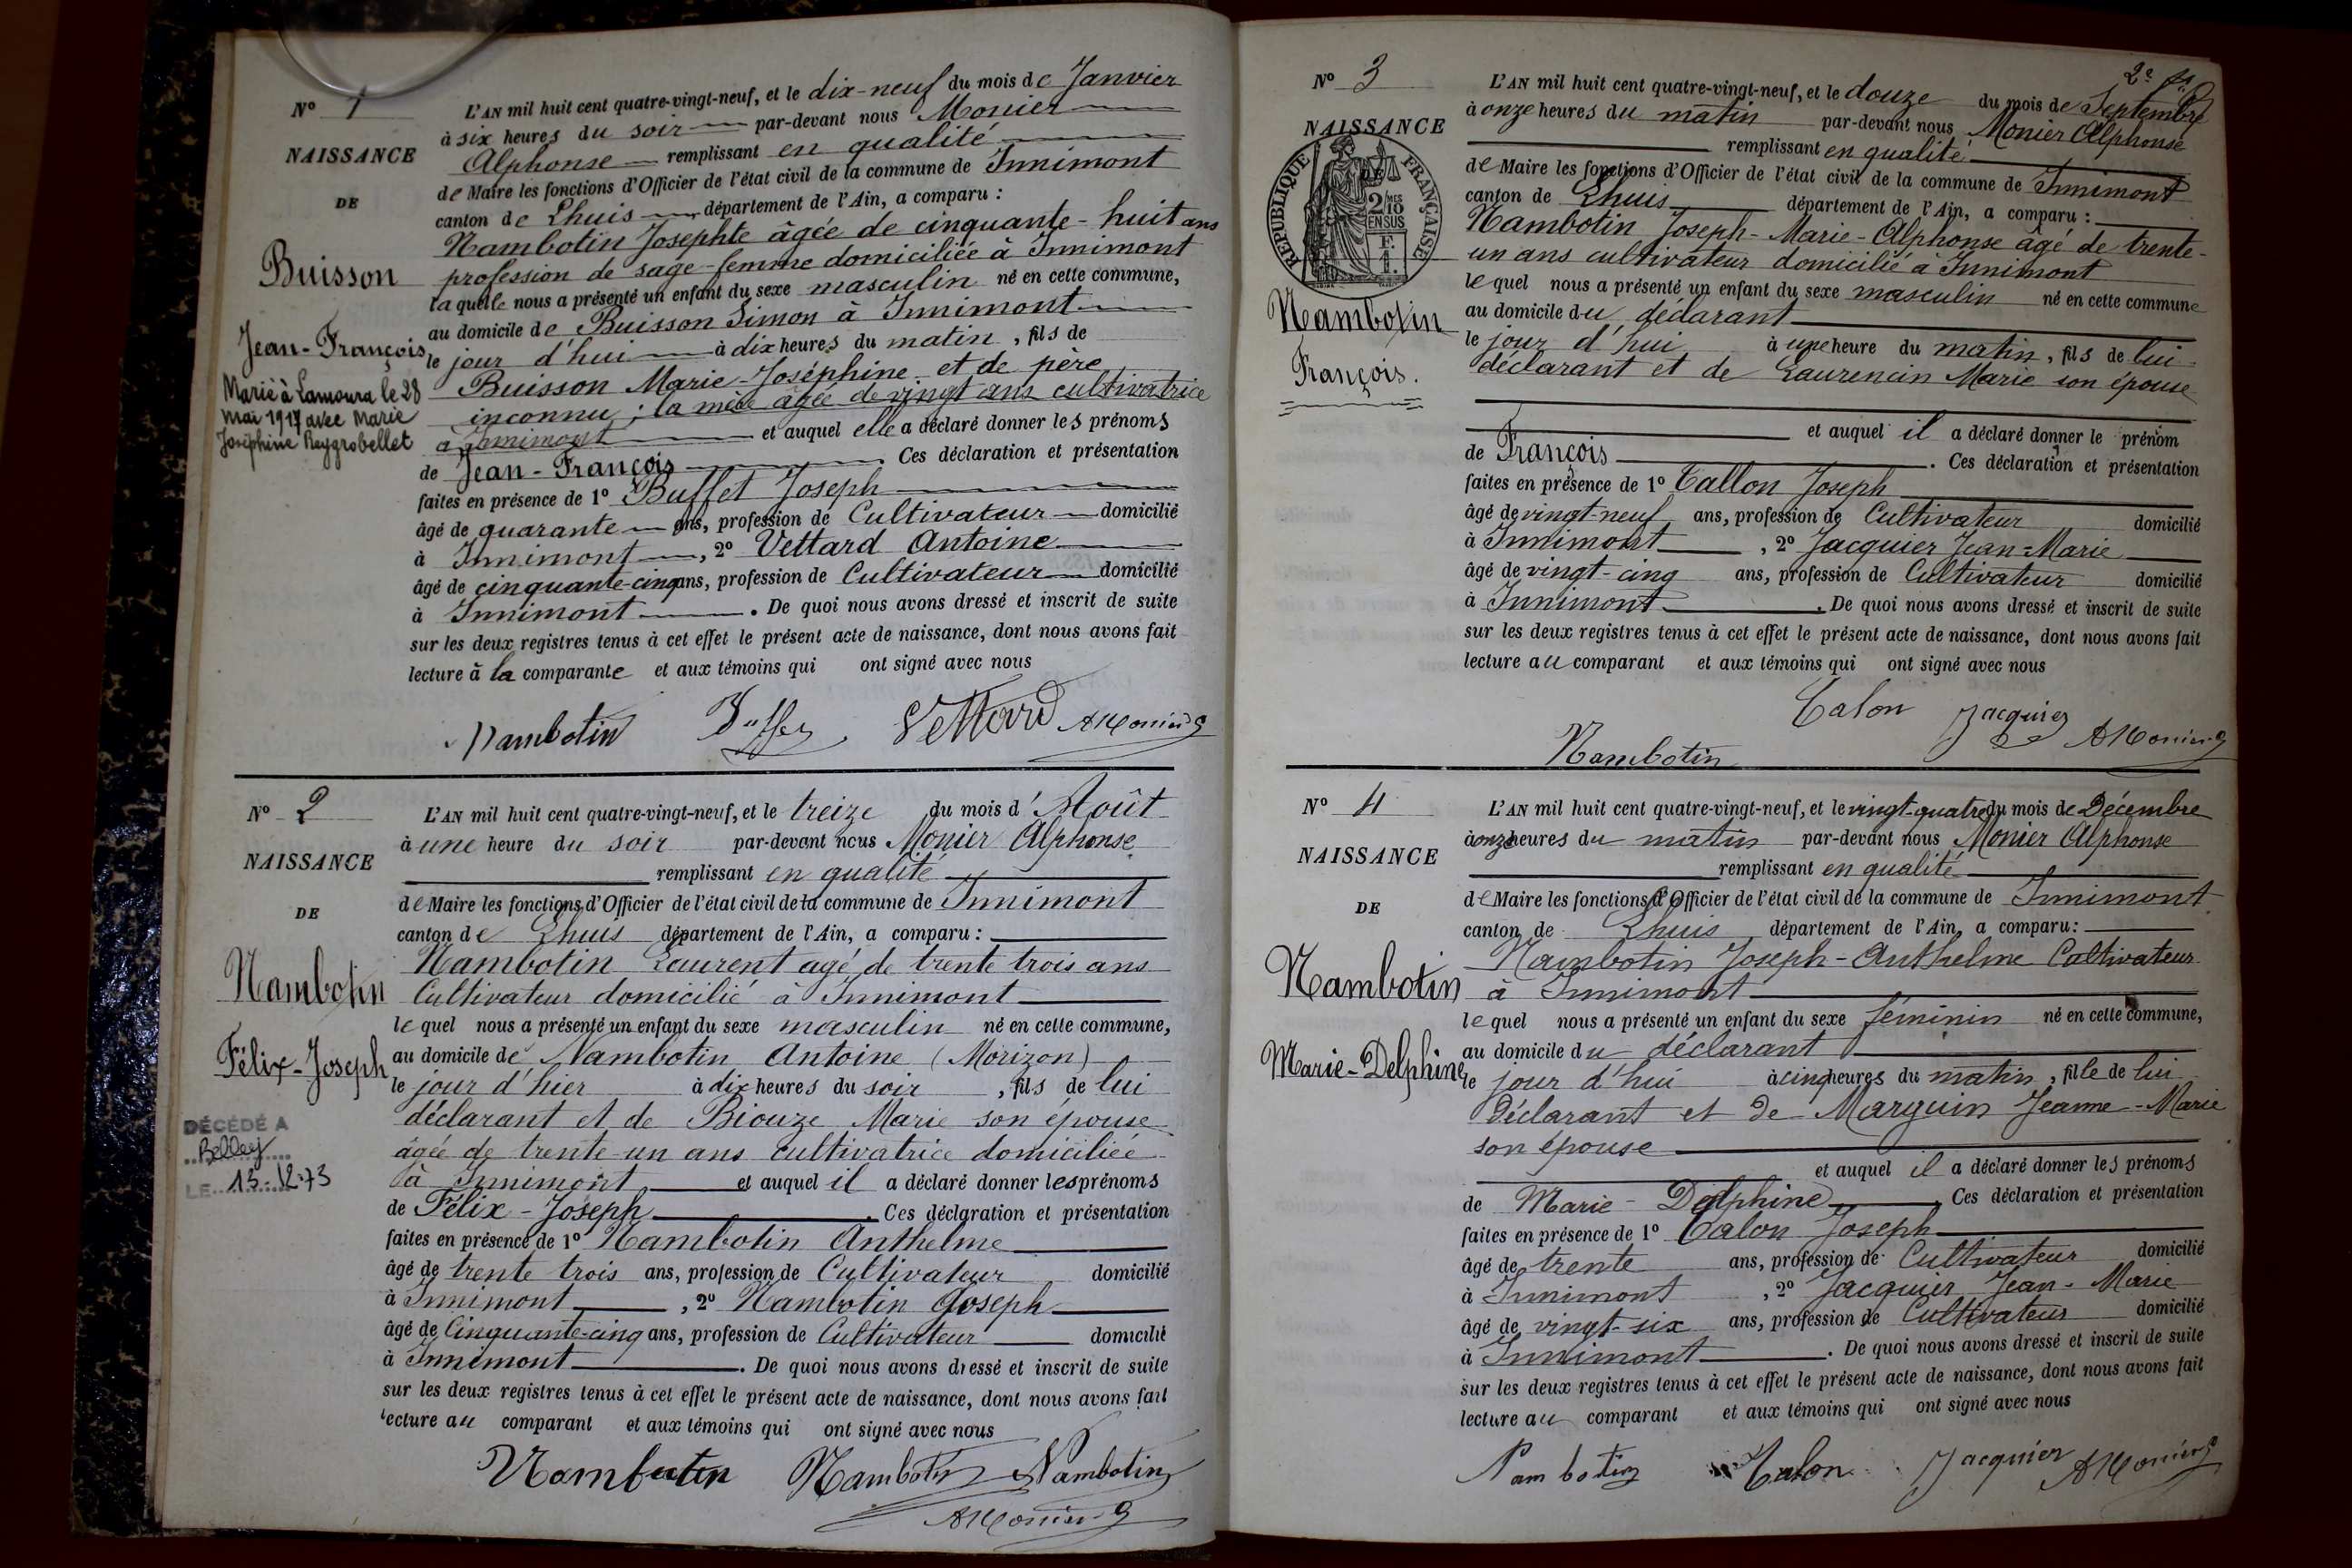 N° 1
NAISSANCE
DE
Buisson
Jean-François
Marié à Lamoura le 28
mai 1917 avec Marie
Joséphine Reygrobellet
L'AN mil huit cent quatre-vingt-neuf, et le dix-neuf du mois de Janvier
à six heures du soir par-devant nous Monier
Alphonse remplissant en qualité
de Maire les fonctions d'Officier de l'état civil de la commune de Innimont
canton de Lhuis département de l'Ain, a comparu :
Nambotin Josephte âgée de cinquante-huit ans
profession de sage-femme domiciliée à Innimont
laquelle nous a présenté un enfant du sexe masculin né en cette commune,
au domicile de Buisson Simon à Innimont
le jour d'hui à dix heures du matin, fils de
Buisson Marie-Joséphine et de père
inconnu ; la mère âgée de vingt ans cultivatrice
à Innimont et auquel elle a déclaré donner les prénoms
de Jean-François. Ces déclaration et présentation
faites en présence de 1° Buffet Joseph
âgé de quarante ans, profession de Cultivateur domicilié
à Innimont, 2° Vettard Antoine
âgé de cinquante-cinq ans, profession de Cultivateur domicilié
à Innimont. De quoi nous avons dressé et inscrit de suite
sur les deux registres tenus à cet effet le présent acte de naissance, dont nous avons fait
lecture à la comparante et aux témoins qui ont signé avec nous
Nambotin Buffet Vettard AMonier
N° 2
NAISSANCE
DE
Nambotin
Félix-Joseph
DÉCÉDÉ A
Belley
LE 15-12-73
L'AN mil huit cent quatre-vingt-neuf, et le treize du mois d'Août
à une heure du soir par-devant nous Monier Alphonse
remplissant en qualité
de Maire les fonctions d'Officier de l'état civil de la commune de Innimont
canton de Lhuis département de l'Ain, a comparu :
Nambotin Laurent agé de trente trois ans
Cultivateur domicilié à Innimont
lequel nous a présenté un enfant du sexe masculin né en cette commune,
au domicile de Nambotin Antoine (Morizon)
le jour d'hier à dix heures du soir, fils de lui
déclarant et de Biouze Marie son épouse
âgée de trente-un ans cultivatrice domiciliée
à Innimont et auquel il a déclaré donner les prénoms
de Félix-Joseph. Ces déclaration et présentation
faites en présence de 1° Nambotin Anthelme
âgé de trente trois ans, profession de Cultivateur domicilié
à Innimont, 2° Nambotin Joseph
âgé de Cinquante-cinq ans, profession de Cultivateur domicilié
à Innimont. De quoi nous avons dressé et inscrit de suite
sur les deux registres tenus à cet effet le présent acte de naissance, dont nous avons fait
lecture au comparant et aux témoins qui ont signé avec nous
Nambotin Nambotin Nambotin
AMonier
2e
N° 3
NAISSANCE
DE
RÉPUBLIQUE FRANÇAISE
2/10MES
EN SUS
F.
1.
Nambotin
François.
L'AN mil huit cent quatre-vingt-neuf, et le douze du mois de Septembre
à onze heures du matin par-devant nous Monier Alphonse
remplissant en qualité
de Maire les fonctions d'Officier de l'état civil de la commune de Innimont
canton de Lhuis département de l'Ain, a comparu :
Nambotin Joseph-Marie-Alphonse âgé de trente-
un ans cultivateur domicilié à Innimont
lequel nous a présenté un enfant du sexe masculin né en cette commune
au domicile du déclarant
le jour d'hui à une heure du matin, fils de lui
déclarant et de Laurencin Marie son épouse
et auquel il a déclaré donner le prénom
de François. Ces déclaration et présentation
faites en présence de 1° Callon Joseph
âgé de vingt-neuf ans, profession de Cultivateur domicilié
à Innimont, 2° Jacquier Jean-Marie
âgé de vingt-cinq ans, profession de Cultivateur domicilié
à Innimont. De quoi nous avons dressé et inscrit de suite
sur les deux registres tenus à cet effet le présent acte de naissance, dont nous avons fait
lecture au comparant et aux témoins qui ont signé avec nous
Calon Jacquier AMonier
Nambotin
N° 4
NAISSANCE
DE
Nambotin
Marie-Delphine
L'AN mil huit cent quatre-vingt-neuf, et le vingt-quatre du mois de Décembre
à onze heures du matin par-devant nous Monier Alphonse
remplissant en qualité
de Maire les fonctions d'Officier de l'état civil de la commune de Innimont
canton de Lhuis département de l'Ain, a comparu :
Nambotin Joseph-Anthelme Cultivateur
à Innimont
lequel nous a présenté un enfant du sexe féminin né en cette commune,
au domicile du déclarant
le jour d'hui à cinq heures du matin, fille de lui
déclarant et de Marguin Jeanne-Marie
son épouse
et auquel il a déclaré donner les prénoms
de Marie-Delphine. Ces déclaration et présentation
faites en présence de 1° Calon Joseph
âgé de trente ans, profession de Cultivateur domicilié
à Innimont, 2° Jacquier Jean-Marie
âgé de vingt-six ans, profession de Cultivateur domicilié
à Innimont. De quoi nous avons dressé et inscrit de suite
sur les deux registres tenus à cet effet le présent acte de naissance, dont nous avons fait
lecture au comparant et aux témoins qui ont signé avec nous
Nambotin Calon Jacquier AMonier